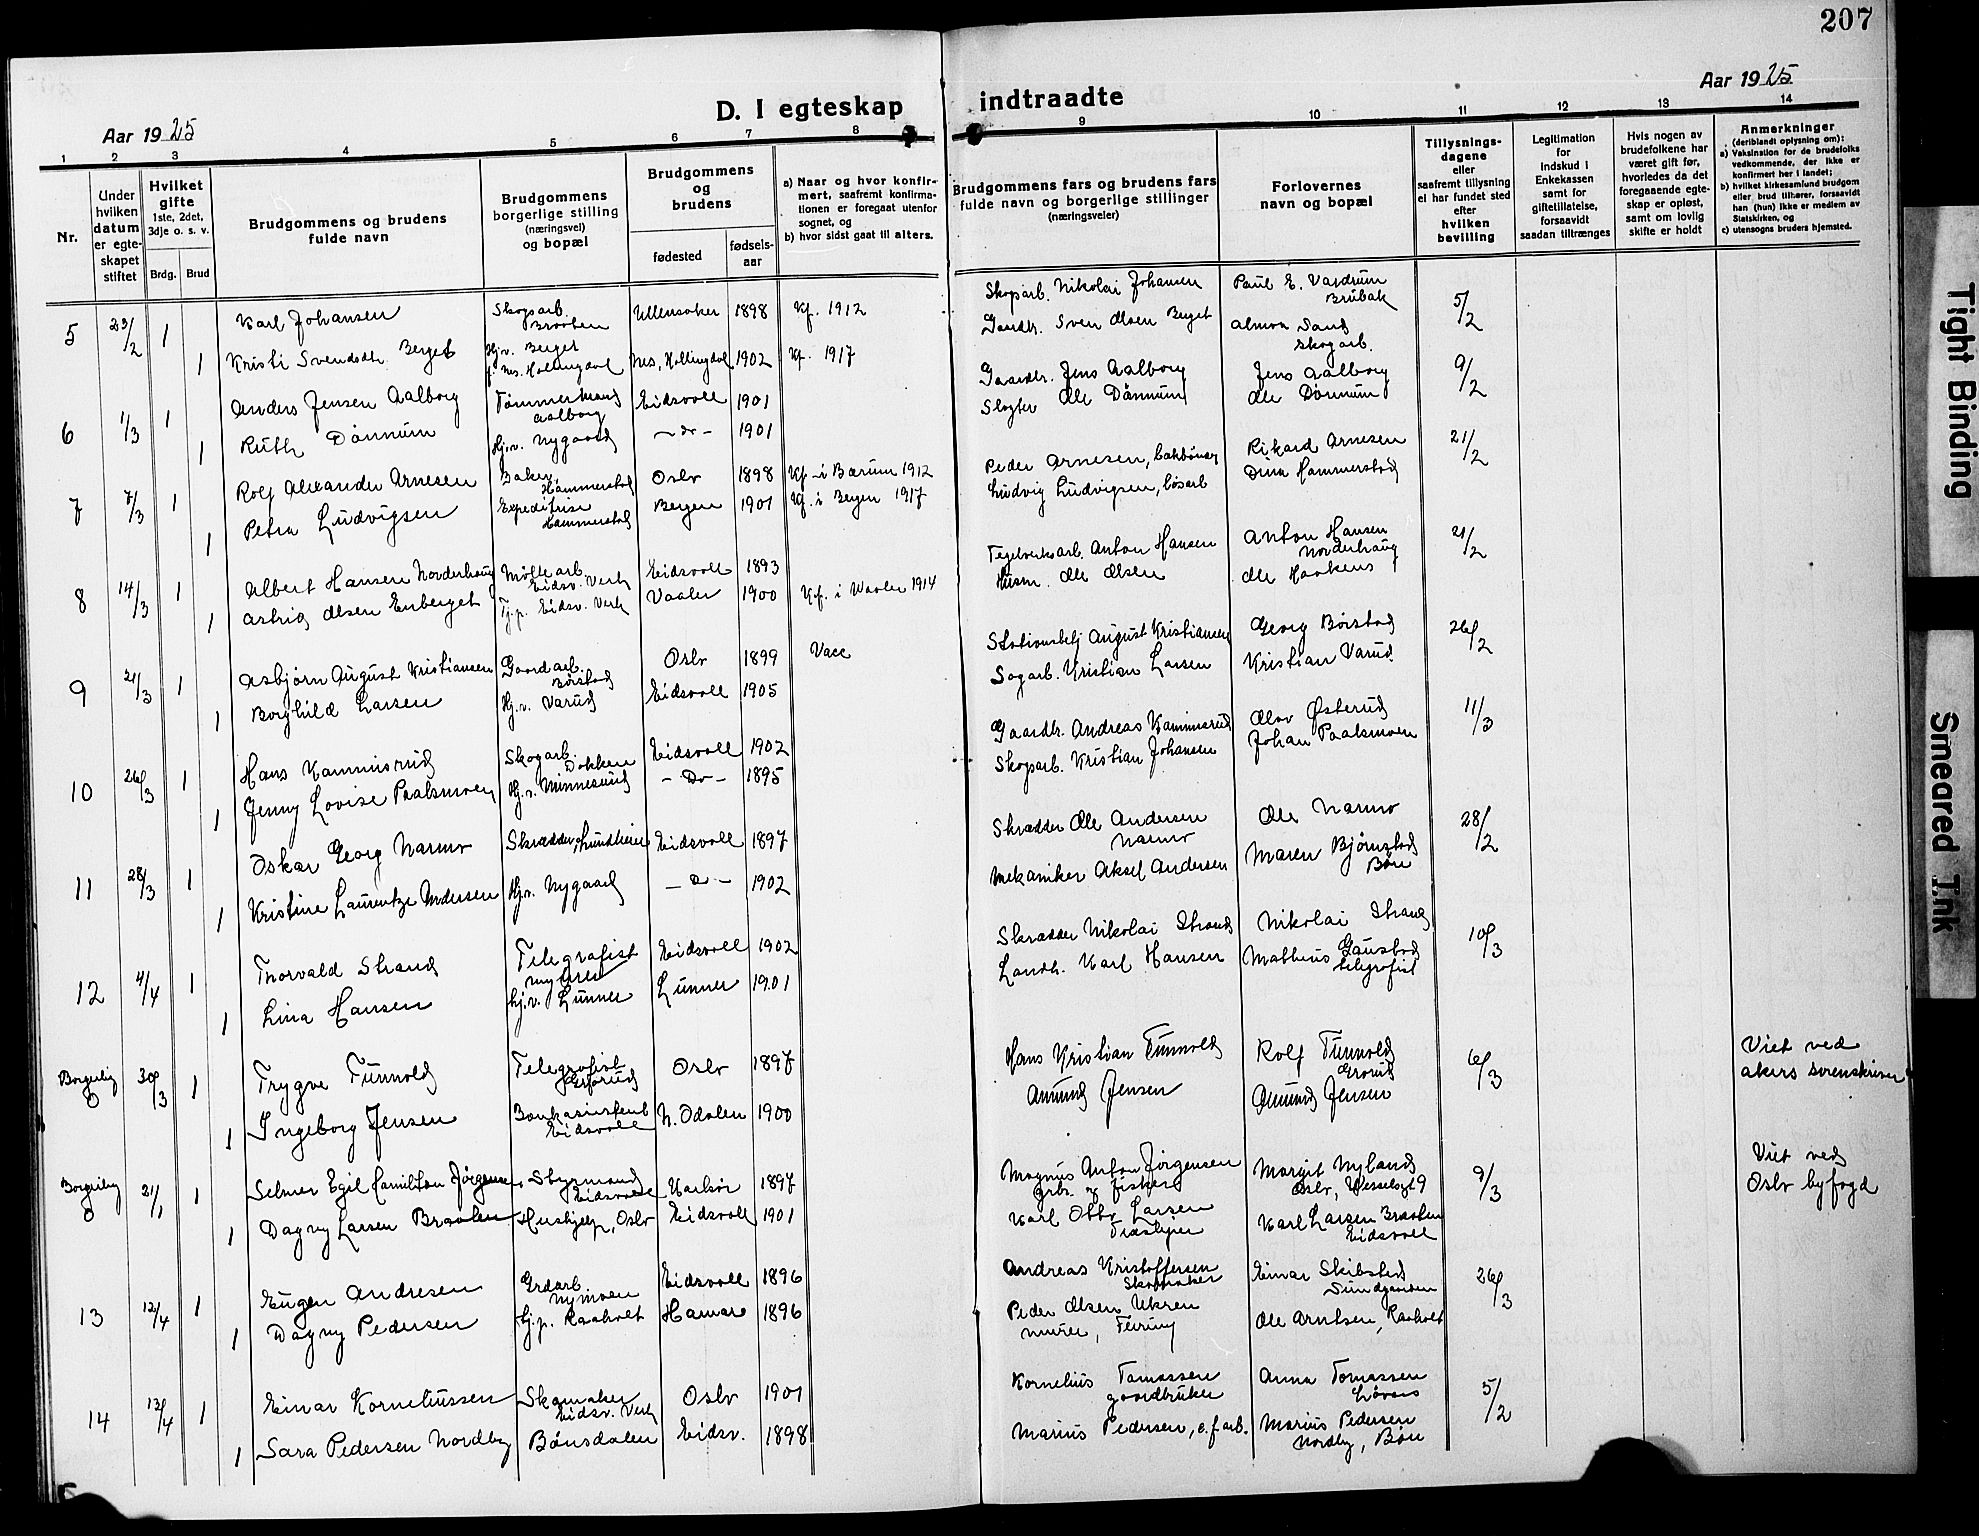 207
Aar 1925
D. I egteskap
indtraadte
Aar 1925
1 2 3 4 5 6 7 8 9 10 11 12 13 14
Nr.
Under hvilken datum er egteskapet stiftet
Hvilket gifte 1ste, 2det, 3dje o. s. v.
Brdg. Brud
Brudgommens og brudens fulde navn
Brudgommens borgerlige stilling (næringsvei) og bopæl
Brudgommens og brudens
fødested
fødsels-aar
a) Naar og hvor konfirmert, saafremt konfirmationen er foregaat utenfor sognet, og
b) hvor sidst gaat til alters.
Brudgommens fars og brudens fars fulde navn og borgerlige stillinger (næringsveier)
Forlovernes navn og bopæl
Tillysningsdagene eller saafremt tillysning ei har fundet sted efter hvilken bevilling
Legitimation for indskud i Enkekassen samt for giftetillatelse, forsaavidt saadan tiltrænges
Hvis nogen av brudefolkene har været gift før, hvorledes da det foregaaende egteskap er opløst, samt om lovlig skifte er holdt
Anmerkninger (deriblandt oplysning om):
a) Vaksination for de brudefolks vedkommende, der ikke er konfirmert her i landet;
b) hvilket kirkesamfund brudgom eller brud tilhører, forsaavidt han (hun) ikke er medlem av Statskirken, og
c) utensogns bruders hjemsted.
5 23/2 1 Karl Johansen Skogsarb. Braaten Ullensaker 1898 Kf. 1912 Skogsarb. Nikolai Johansen Paul E. Vardrum Brubak 5/2
1 Kristi Svendsdtr. Berget Hj.v. Berget f. Nes, Hallingdal Nes, Hallingdal 1902 Kf. 1917 Gaardbr. Sven Olsen Berget Almon Sand skogarb.
6 1/3 1 Anders Jensen Aalborg Tømmermand Aalborg Eidsvoll 1901 Gaardbr. Jens Aalborg Jens Aalborg 9/2
1 Ruth Dønnum Hj.v. Nygaard – do – 1901 Slagter Ole Dønnum Ole Dønnum
7 7/3 1 Rolf Alexander Arnesen Baker, Hammerstad Oslo 1898 Kf. i Bærum 1912 Peder Arnesen, Rikard Arnesen 21/2
1 Petra Ludvigsen Expeditrise Hammerstad Bergen 1901 Kf. i Bergen 1917 Ludvig Ludvigsen, løsarb Dina Hammerstad
8 14/3 1 Albert Hansen Norderhaug Mølle arb. Eidsv. Verk Eidsvoll 1893 Teglverksarb. Anton Hansen Anton Hansen Norderhaug 21/2
1 Astrid Olsen Enberget Tj.p. Eidsv. Verk Vaaler 1900 Kf. i Vaaler 1914 Husm. Ole Olsen Ole Haakens
9 21/3 1 Asbjørn August Kristiansen Gaardarb. Børstad Oslo 1899 Vacc Stationsbetj August Kristiansen Georg Børstad 26/2
1 Borghild Larsen Hj.v. Varud Eidsvoll 1905 Sagarb. Kristian Larsen Kristian Varud
10 26/3 1 Hans Kammisrud Skogarb. Dokken Eidsvoll 1902 Gaardbr. Andreas Kammisrud Olav Østerud 11/3
1 Jenny Lovise Paalsmoen Hj.v. Minnesund – Do – 1895 Skogsarb. Kristian Johansen Johan Paalsmoen
11 28/3 1 Oskar Georg Narmo Skrædder, Eidsvoll 1897 Skrædder Ole Andersen Narmo Ole Narmo 28/2
1 Kristine Laurentze Andersen Hj.v. Nygaard – do – 1902 Mekaniker Aksel Andersen Maren Bjørnstad Bøn
12 4/4 1 Thorvald Strand Telegrafist Eidsvoll 1902 Skrædder Nikolai Strand Nikolai Strand 10/3
1 Lina Hansen hj.v. Lunner Lunner 1901 Landh. Karl Hansen Mathius Gaustad telegrafist
Borgerlig 30/3 1 Trygve Tunnold Telegrafist Grorud Oslo 1897 Hans Kristian Tunnold Rolf Tunnold Grorud 6/3 Viet ved Akers sorenskriver
1 Ingeborg Jensen Bankassistent Eidsvoll N. Odalen 1900 Amund Jensen Amund Jensen
Borgerlig 21/1 1 Selmer Egil Hamilton Jørgensen Styrmand Eidsvoll 1897 Magnus Anton Jørgensen grbr. og fisker Margit Nyland Oslo, Wesselsgt 9 9/3 Viet ved Oslo byfogd
1 Dagny Larsen Braaten Hushjelp, Oslo Eidsvoll 1901 Karl Otto Larsen Karl Larsen Braaten Eidsvoll
13 12/4 1 Eugen Andresen Grdarb. Nymoen Eidsvoll 1896 Andreas Kristoffersen Skomaker Einar Skibsted 26/3
1 Dagny Pedersen Hj.p. Raaholt Hamar 1896 Peder Olsen Ukren murer, Feiring Ole Arntsen, Raaholt
14 13/4 1 Einar Korneliussen Skomaker Eidsv. Verk Oslo 1901 Kornelius Tomassen gaardbruker Anna Tomassen 5/2
1 Sara Pedersen Nordby Bønsdalen Eidsv. 1898 Marius Pedersen, e.f.arb. Marius Pedersen Nordby, Bøn
Tight Binding
Smeared Ink